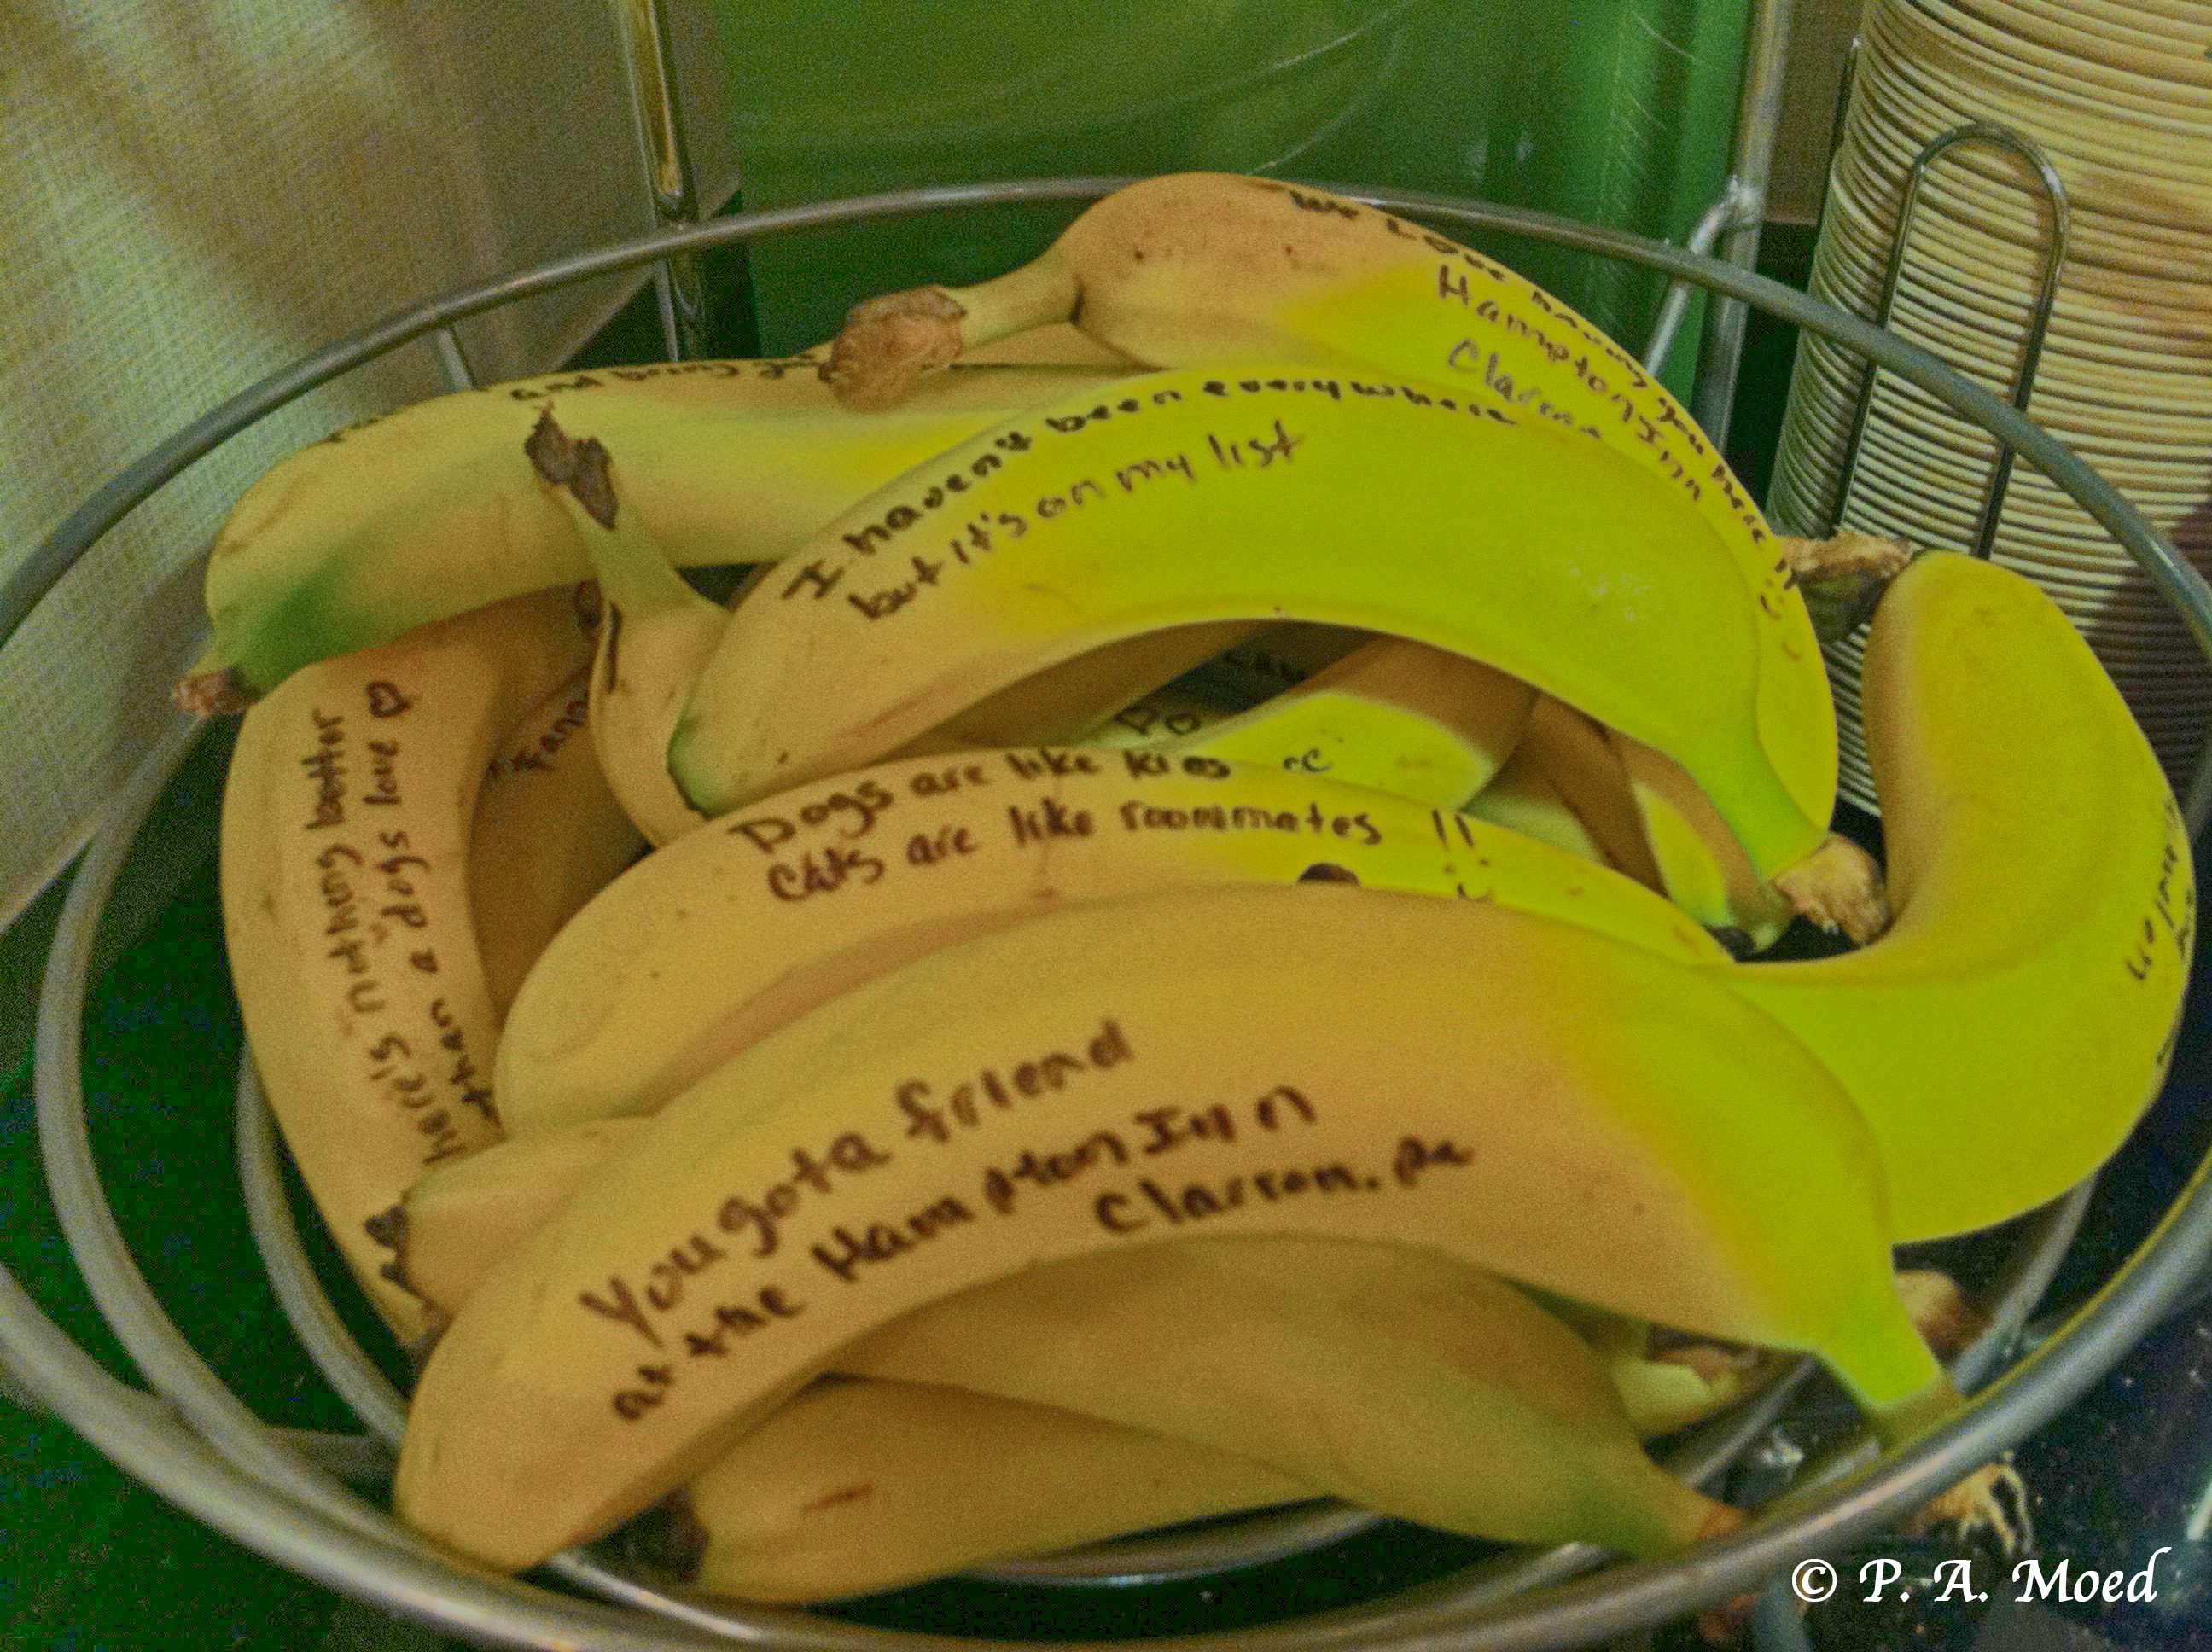 We Love having you here !!
Hampton Inn
Clarion
and being
I haven't been everywhere
but it's on my list
Dogs are like kids
Cats are like roommates !!
heres nothing better
than a dogs love ♡
You gota friend
at the Hampton Inn
Clarion. Pa
© P. A. Moed